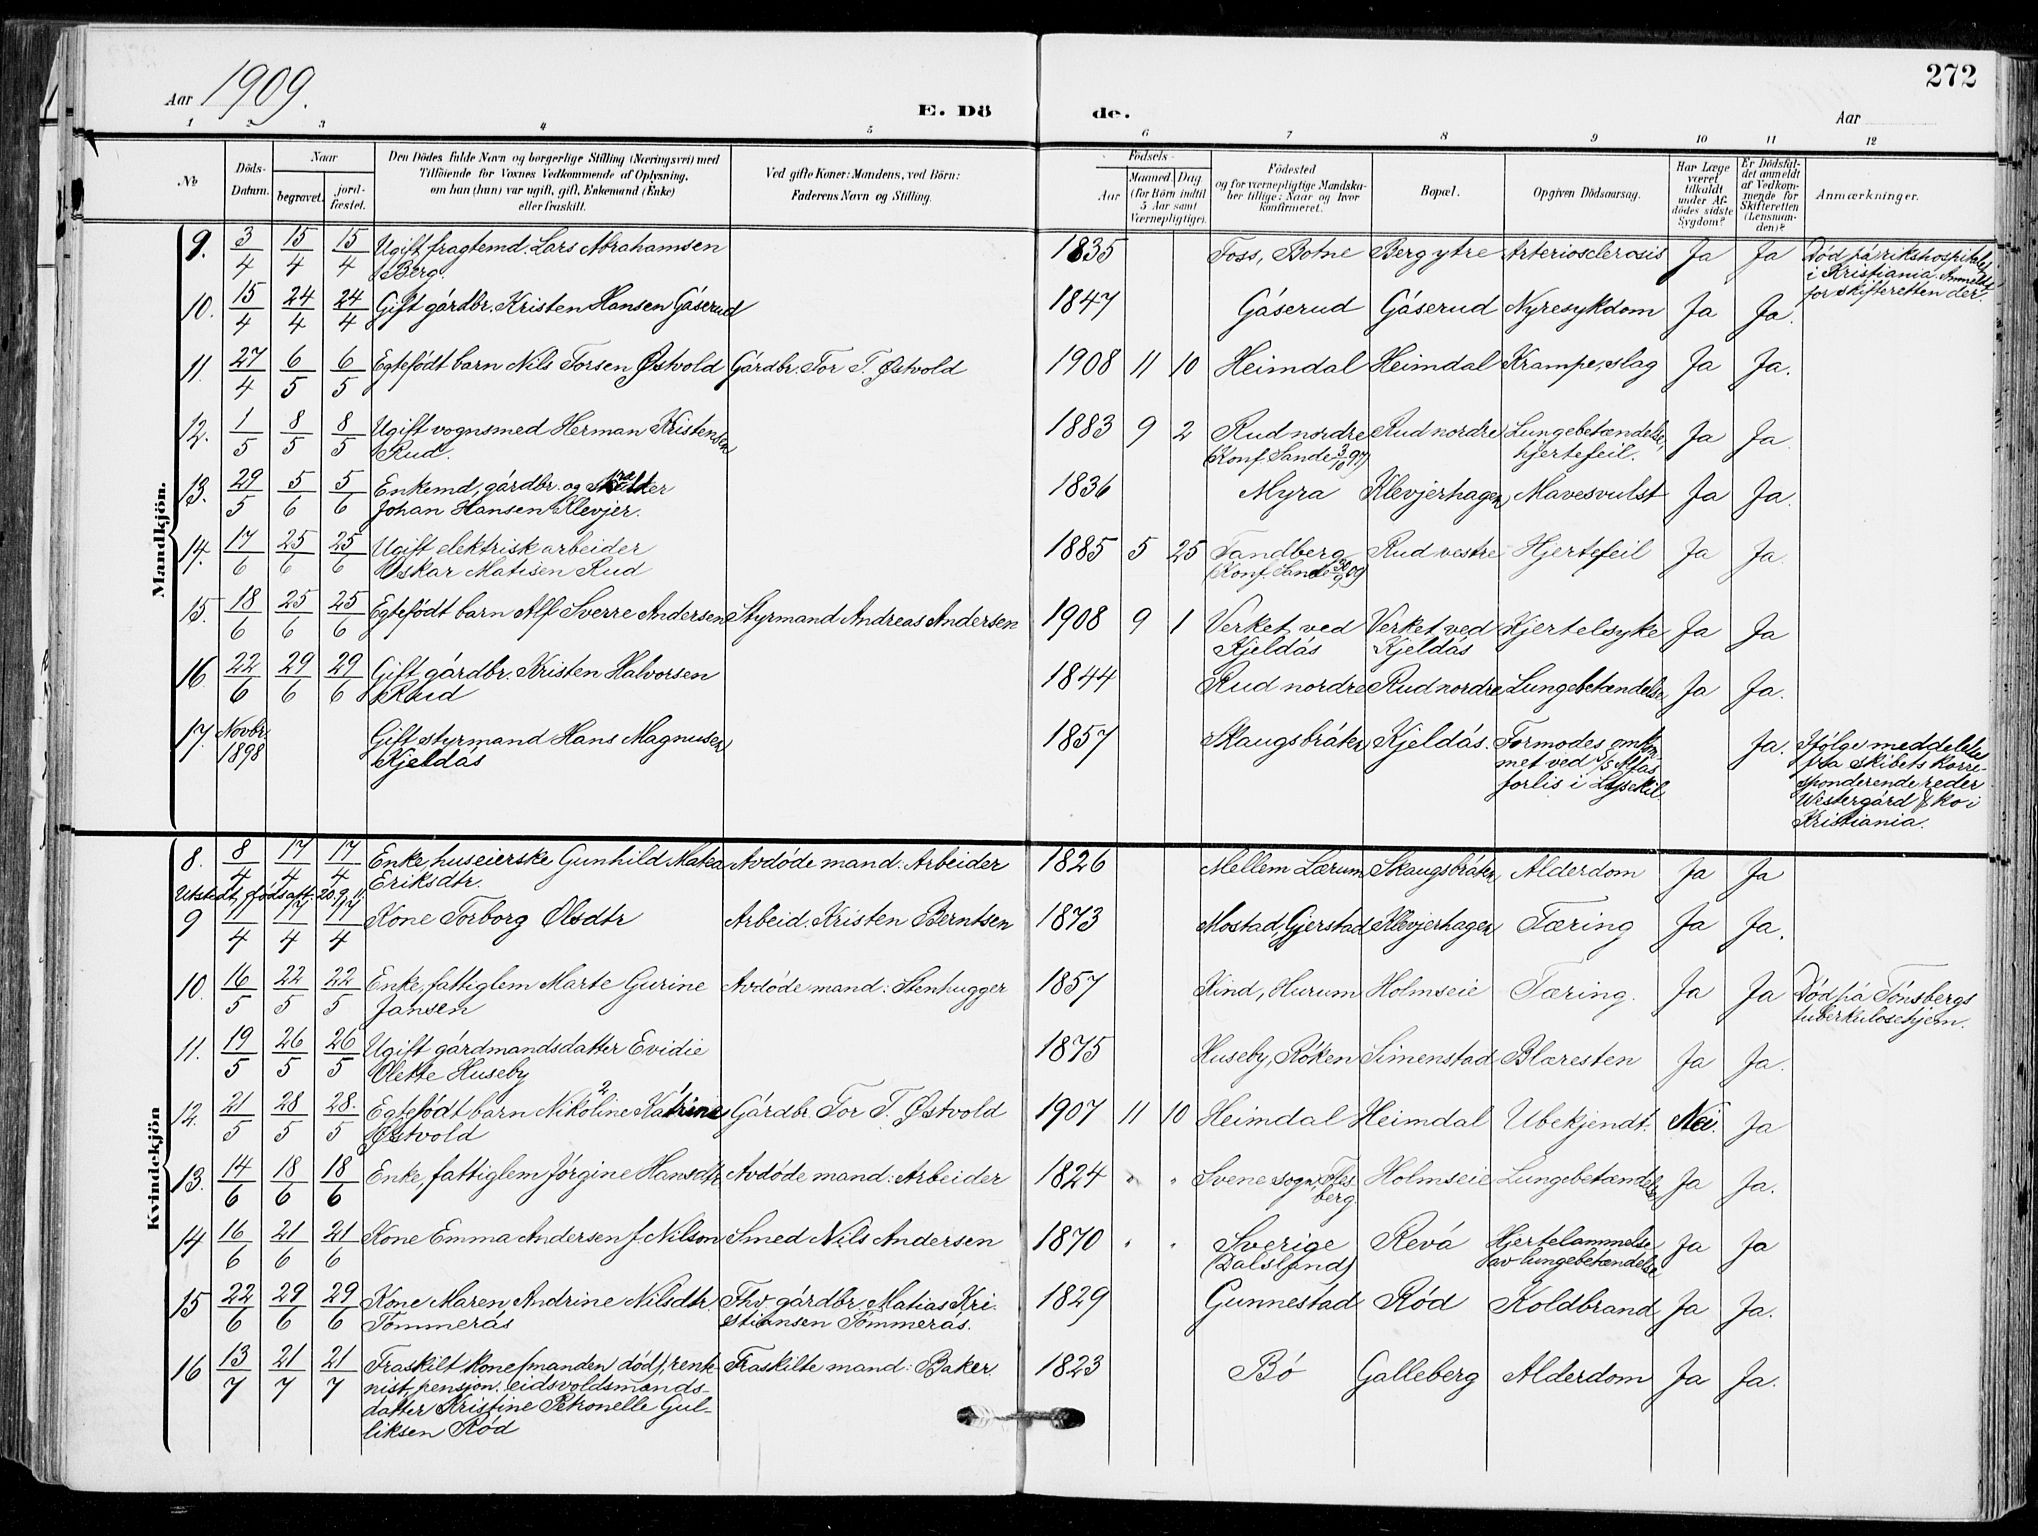 Aar 1909.
E. Dö de.
Aar
272
1 2 3 4 5 6 7 8 9 10 11 12
No
Döds-Datum.
Naar
begravet.
jord-fæstet.
Den Dödes fulde Navn og borgerlige Stilling (Næringsvei) med
Tilföiende for Voxnes Vedkommende af Oplysning,
om han (hun) var ugift, gift, Enkemand (Enke)
eller fraskilt.
Ved gifte Koner: Mandens, ved Börn:
Faderens Navn og Stilling.
Födsels-
Aar
Maaned. Dag
(for Börn indtil
5 Aar samt
Værnepligtige).
Födested
og for værnepligtige Mandska-
ber tillige: Naar og hvor
konfirmeret.
Bopæl.
Opgiven Dödsaarsag.
Har Læge
været
tilkaldt
under Af-
dödes sidste
Sygdom?
Er Dödsfal-
det anmeldt
af Vedkom-
mende for
Skifteretten
(Lensman-
den)?
Anmærkninger.
Mandkjön.
9. 3/4 15/4 15/4 Ugift fragtemd. Lars Abrahamsen 1835 Foss, Botne Berg ytre Arteriosclerosis Ja Ja Död på rikshospitalet
Berg. i Kristiania. Anmeldt
for skifteretten der.
10. 15/4 24/4 24/4 Gift gårdbr. Kristen Hansen Gåserud 1847 Gåserud Gåserud Nyresykdom Ja Ja.
11. 27/4 6/5 6/5 Egtefödt barn Nils Torsen Østvold Gårdbr. Tor T. Østvold 1908 11 10 Heimdal Heimdal Krampe, slag Ja Ja.
12. 1/5 8/5 8/5 Ugift vognsmed Herman Kristensen 1883 9 2 Rud nordre Rud nordre Lungebetændelse, Ja Ja.
Rud. (Konf. Sande 3/10 97) hjertefeil.
13. 29/5 5/6 5/6 Enkemd, gårdbr. og 1836 Myra Klevjerhagen Mavesvulst Ja Ja.
Johan Hansen Klevjer.
14. 17/6 25/6 25/6 Ugift elektrisk arbeider 1885 5 25 Tandberg Rud vestre Hjertefeil Ja Ja.
Oskar Matisen Rud (Konf. Sande
15. 18/6 25/6 25/6 Egtefödt barn Alf Sverre Andersen Styrmand Andreas Andersen 1908 9 1 Verket ved Verket ved Hjertelsyke Ja Ja
Kjeldås Kjeldås
16 22/6 29/6 29/6 Gift gårdbr. Kristen Halvorsen 1844 Rud nordre Rud nordre Lungebetændelse Ja Ja.
Rud
17. Novbr. Gift styrmand Hans Magnusen 1857 Skaugsbråten Kjeldås. Formodes omkom- Ja. Ifölge meddelelse
1898 Kjeldås met ved Alfas fra skibets korre-
forlis i Lysekil sponderende reder
Westergård & ko i
Kristiania.
Kvindekjön
8. 8/4 17/4 17/4 Enke huseierske Gunhild Matea Avdöde mand: Arbeider 1826 Mellem Lærum Skaugsbråten Alderdom Ja Ja
Eriksdtr.
Utstedt dödsatt. 20.9.11.
9 11/4 17/4 17/4 Kone Torborg Olsdtr Arbeid. Kristen Berntsen 1873 Mostad, Gjerstad Klevjerhagen Tæring Ja Ja.
10. 16/5 22/5 22/5 Enke, fattiglem Marte Gurine Avdöde mand: Stenhugger 1857 Kind, Hurum Holmseie Tæring. Ja Ja Död på Tönsbergs
Jansen tuberkulosehjem.
11. 19/5 26/5 26/5 Ugift gårdmandsdatter Evidie 1875 Huseby, Röken Simenstad Blæresten Ja Ja.
Olette Huseby
12. 21/5 28/5 28./5 Egtefödt barn Nikoline 2 Katrine 1 Gårdbr. Tor T. Østvold 1907 11 10 Heimdal Heimdal Ubekjendt. Nei. Ja
Østvold
13. 14/6 18/6 18/6 Enke, fattiglem Jörgine Hansdtr Avdöde mand: Arbeider 1824 " " Svene sogn, Fles- Holmseie Lungebetændelse Ja Ja.
berg
14 16/6 21/6 21/6 Kone Emma Andersen f. Nilson Smed Nils Andersen 1870 " " Sverige Revå Hjertelammelse Ja Ja
(Dalsland) av lungebetændelse
15 22/6 29/6 29/6 Kone Maren Andrine Nilsdtr. Fhv. gårdbr. Matias Kri- 1829 Gunnestad Röd Koldbrand Ja Ja.
Tommerås stiansen Tommerås.
16 13/7 21/7 21/7 Fraskilt kone (manden död), rente- Fraskilte mand: Baker. 1823 Bö Galleberg Alderdom Ja Ja.
nist, pensjon. eidsvoldsmands-
datter Kristine Petronelle Gul-
liksen Röd